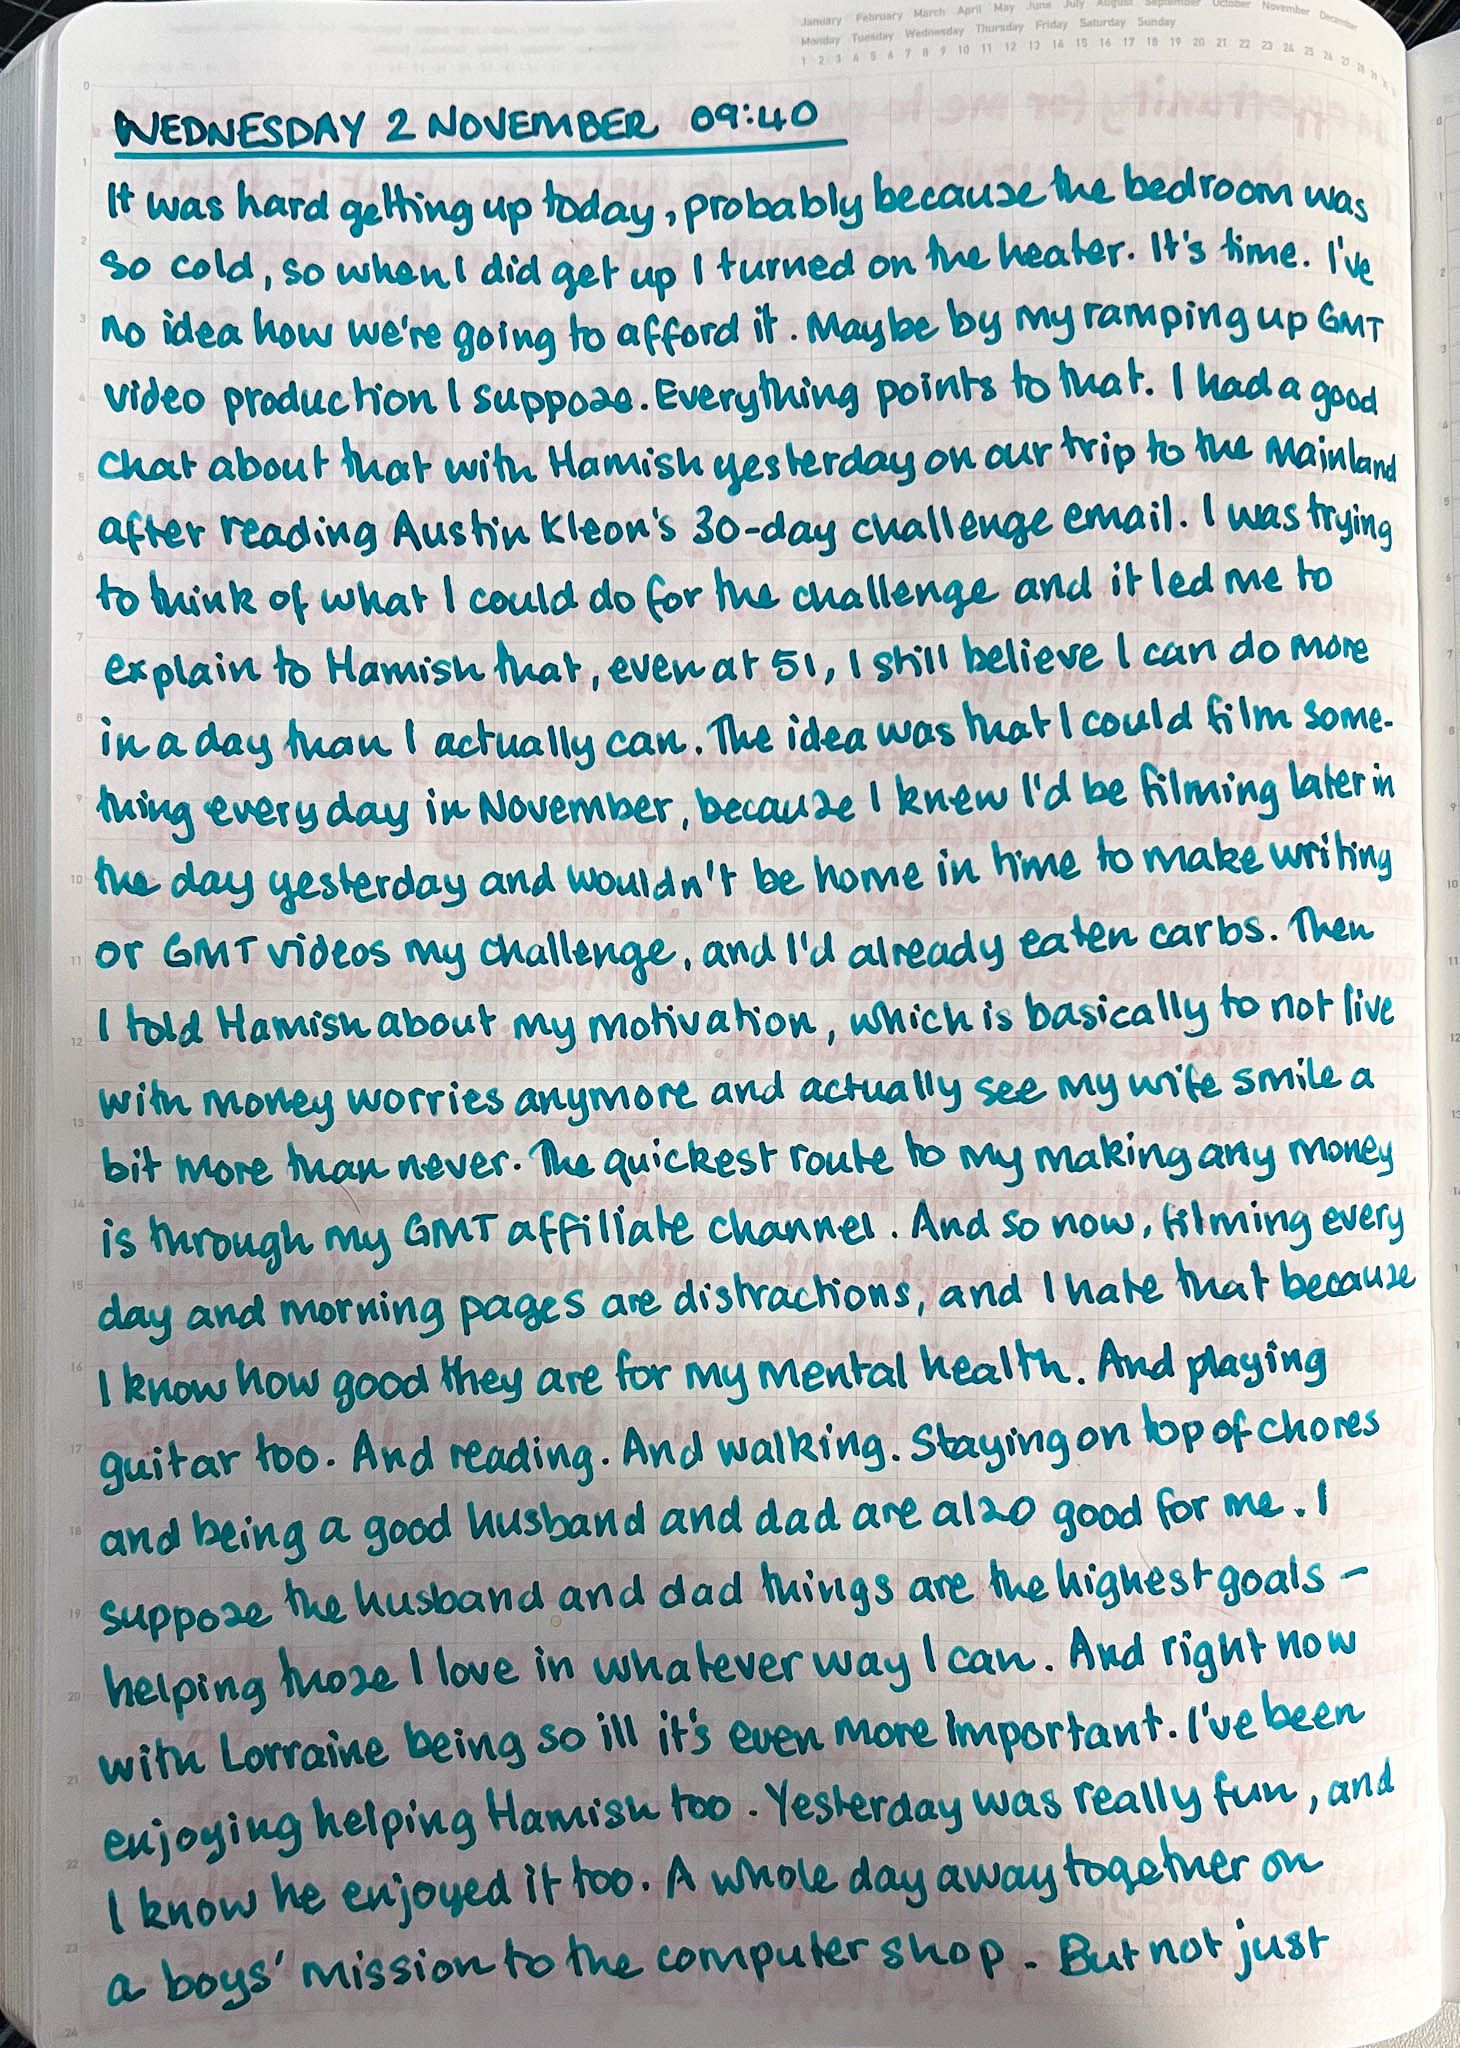 January February March April May June July August September October November December
Monday Tuesday Wednesday Thursday Friday Saturday Sunday
1 2 3 4 5 6 7 8 9 10 11 12 13 14 15 16 17 18 19 20 21 22 23 24 25 26 27 28 29 30 31
WEDNESDAY 2 NOVEMBER 09:40
It was hard getting up today, probably because the bedroom was
so cold, so when I did get up I turned on the heater. It's time. I've
no idea how we're going to afford it. Maybe by my ramping up GMT
video production I suppose. Everything points to that. I had a good
chat about that with Hamish yesterday on our trip to the Mainland
after reading Austin Kleon's 30-day challenge email. I was trying
to think of what I could do for the challenge and it led me to
explain to Hamish that, even at 51, I still believe I can do more
in a day than I actually can. The idea was that I could film some-
thing every day in November, because I knew I'd be filming later in
the day yesterday and wouldn't be home in time to make writing
or GMT videos my challenge, and I'd already eaten carbs. Then
I told Hamish about my motivation, which is basically to not live
with money worries anymore and actually see my wife smile a
bit more than never. The quickest route to my making any money
is through my GMT affiliate channel. And so now, filming every
day and morning pages are distractions, and I hate that because
I know how good they are for my mental health. And playing
guitar too. And reading. And walking. Staying on top of chores
and being a good husband and dad are also good for me. I
suppose the husband and dad things are the highest goals –
helping those I love in whatever way I can. And right now
with Lorraine being so ill it's even more important. I've been
enjoying helping Hamish too. Yesterday was really fun, and
I know he enjoyed it too. A whole day away together on
a boys' mission to the computer shop. But not just